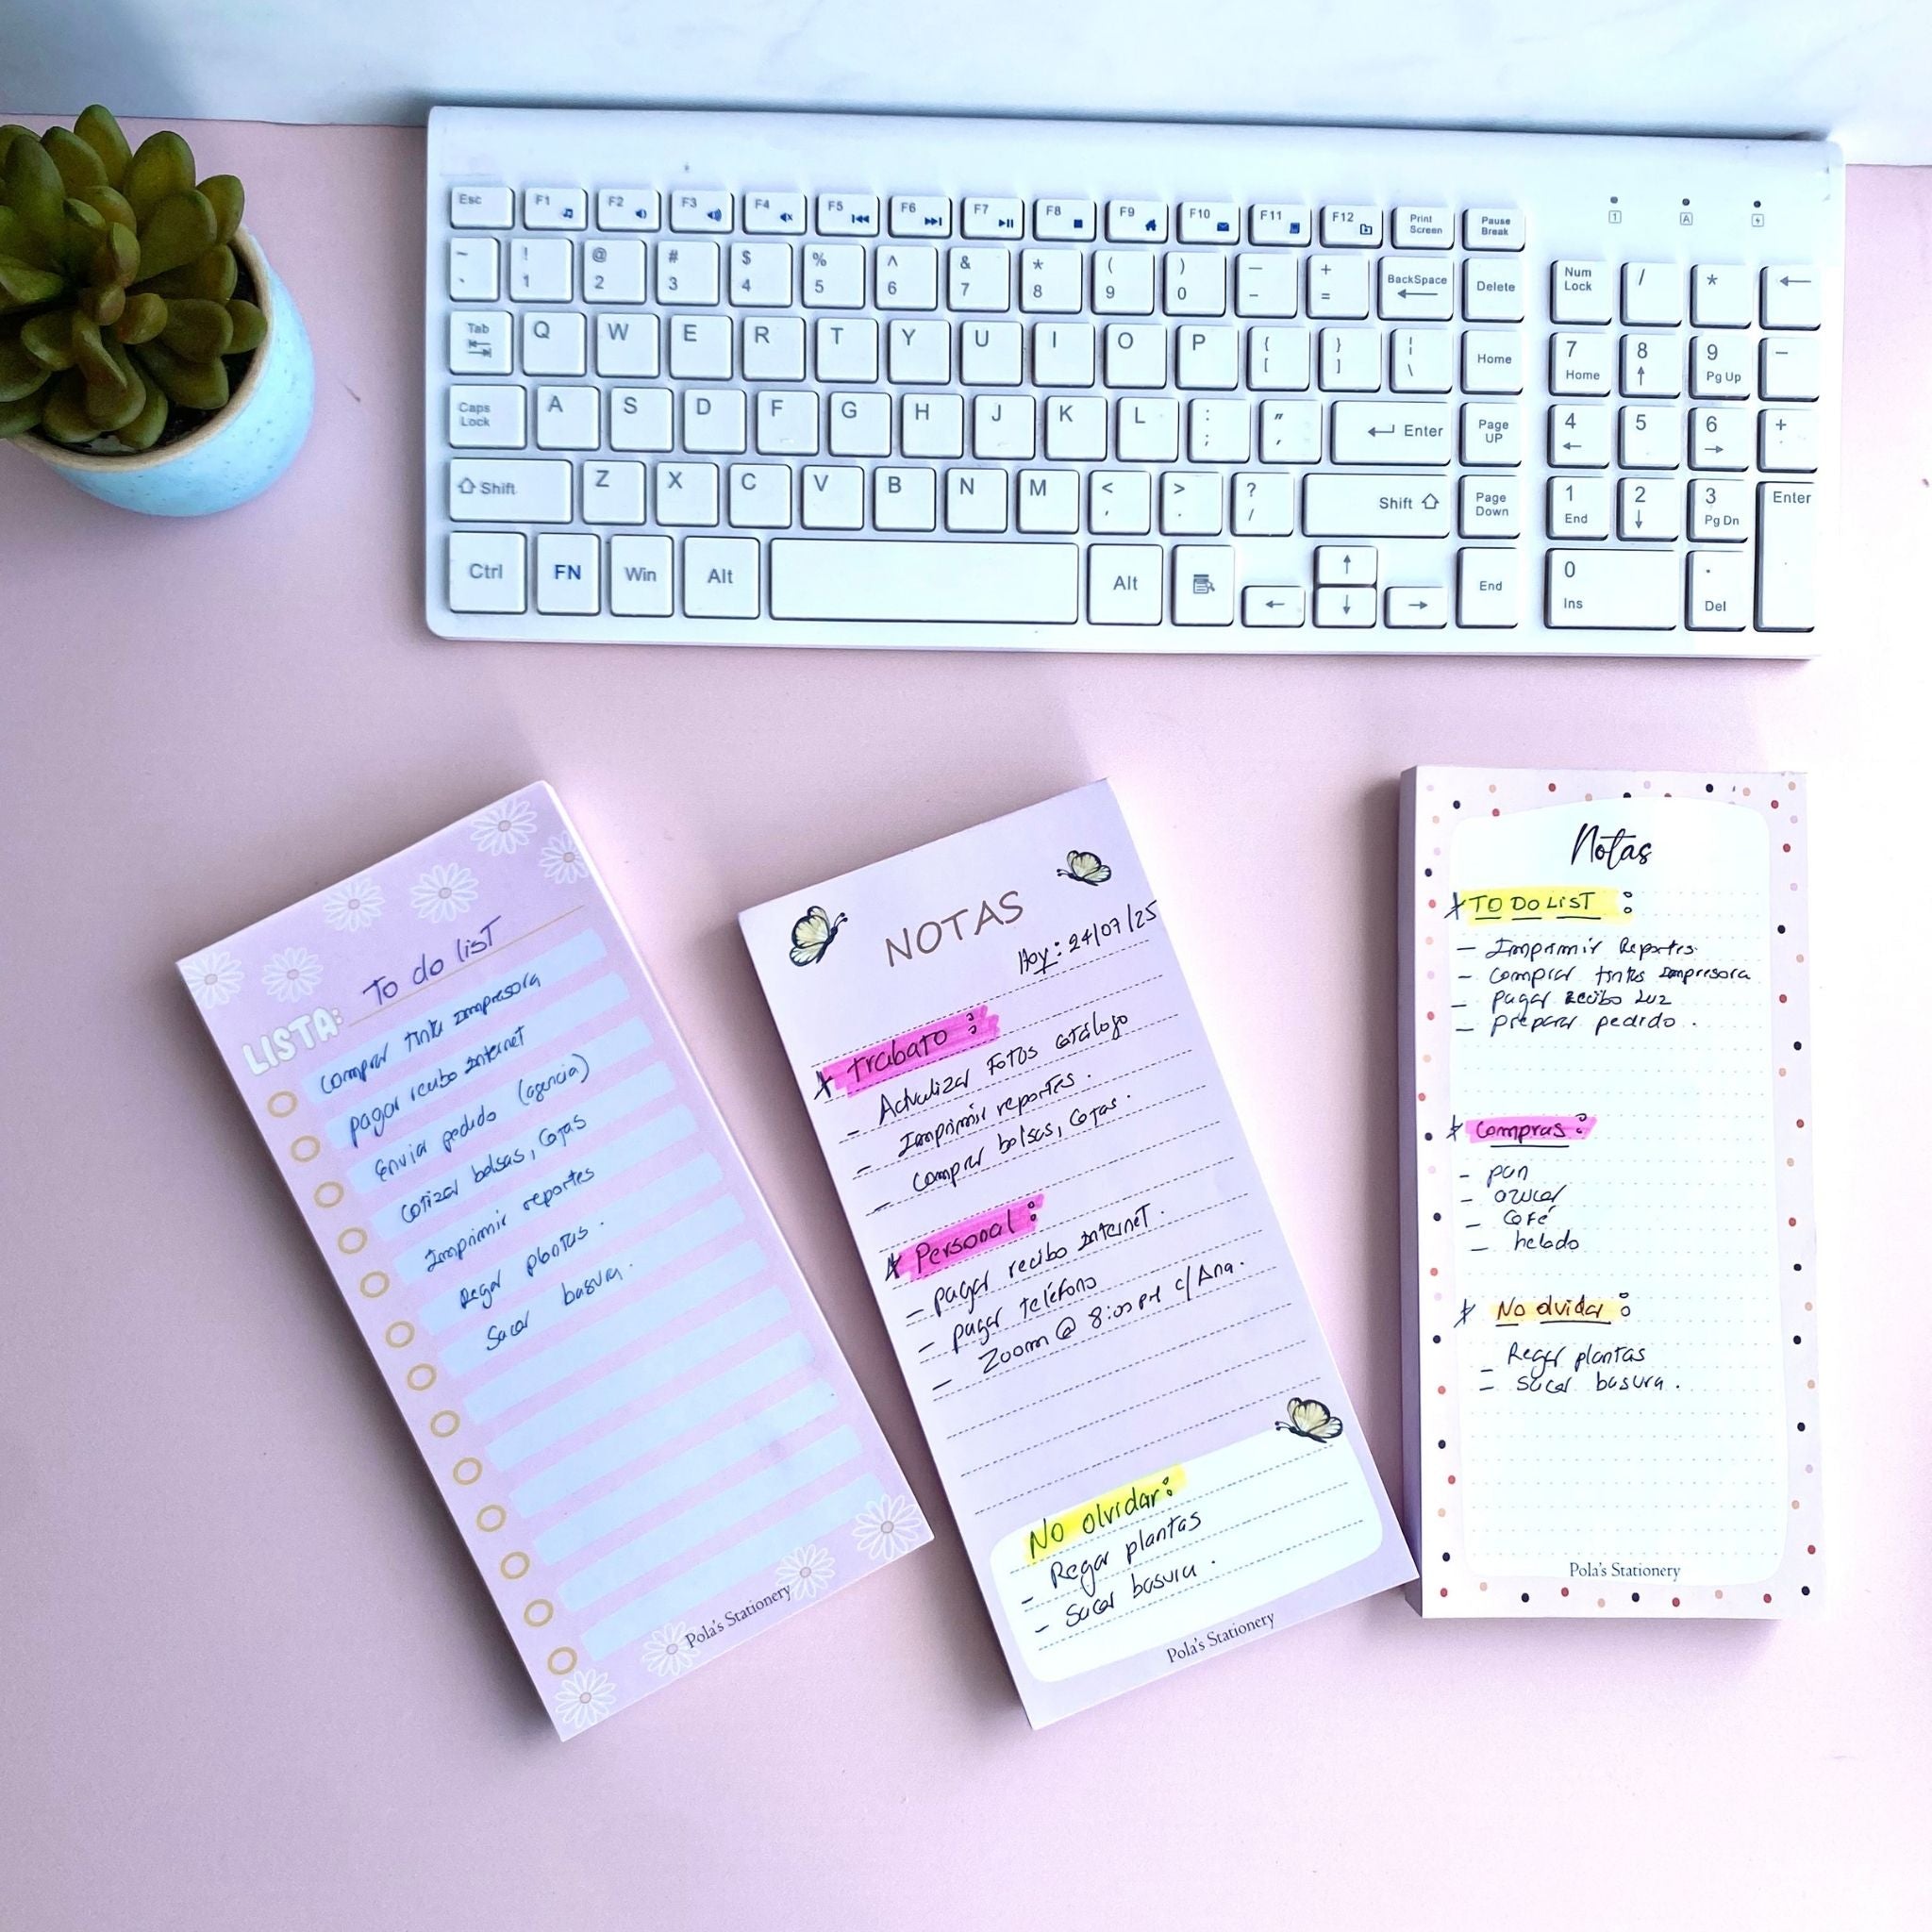 Esc F1 F2 F3 F4 F5 F6 F7 F8 F9 F10 F11 F12 Print Screen Pause Break
~ ` ! 1 @ 2 # 3 $ 4 % 5 ^ 6 & 7 * 8 ( 9 ) 0 — - + = BackSpace Delete Num Lock / *
Tab Q W E R T Y U I O P { [ } ] ¦ \ Home 7 Home 8 9 Pg Up -
Caps Lock A S D F G H J K L : ; " , Enter Page UP 4 5 6 +
Shift Z X C V B N M < , > . ? / Shift Page Down 1 End 2 3 Pg Dn Enter
Ctrl FN Win Alt Alt End 0 Ins . Del
LISTA: To do list
Comprar tinta impresora
pagar recibo internet
Enviar pedido (agencia)
Cotizar bolsas, Cajas
Imprimir reportes
Regar plantas.
Sacar basura.
Pola's Stationery
NOTAS
Hoy: 24/07/25
* Trabajo:
- Actualizar Fotos catálogo
- Imprimir reportes.
- Comprar bolsas, Cajas.
* Personal:
- pagar recibo internet.
- pagar teléfono
- Zoom @ 8:00 PM c/Ana.
No olvidar:
- Regar plantas
- Sacar basura.
Pola's Stationery
Notas
* TO DO LIST :
- Imprimir Reportes.
- Comprar tintas impresora
- pagar recibo luz
- preparar pedido.
* Compras :
- pan
- azucar
- Café
- helado
* No olvidar :
- Regar plantas
- Sacar basura.
Pola's Stationery